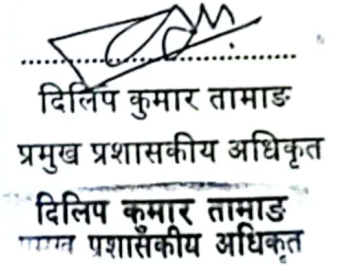 दिलिप कुमार तामाङ
प्रमुख प्रशासकीय अधिकृत
दिलिप कुमार तामाङ
प्रशासकीय अधिकृत